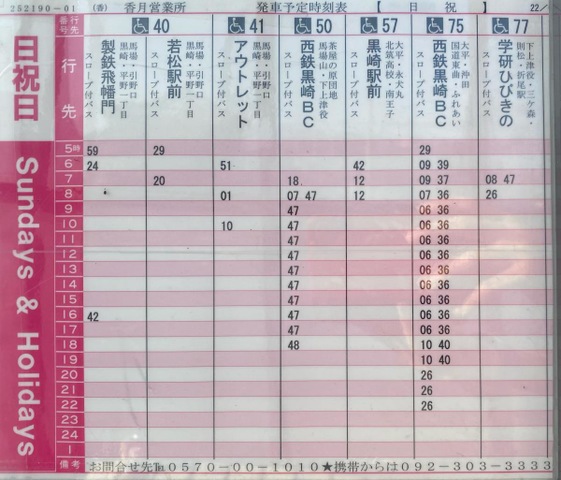 252190-01 (香) 香月営業所 発車予定時刻表 【 日 祝 】 22/
番号 行先 40 41 50 57 75 77
日祝日
Sundays & Holidays
行先
馬場・引野口
黒崎・平野一丁目
製鉄飛幡門
スロープ付バス
馬場・引野口
黒崎・平野一丁目
若松駅前
スロープ付バス
馬場・引野口
黒崎・平野一丁目
アウトレット
スロープ付バス
茶屋の原団地
馬場山・下上津役
西鉄黒崎BC
スロープ付バス
大平・永犬丸
北筑高校・南王子
黒崎駅前
スロープ付バス
大平・沖田
国道東曲・ふれあい
西鉄黒崎BC
スロープ付バス
下上津役・三ケ森・
則松・折尾駅
学研ひびきの
スロープ付バス
5時 59 29 29
6 24 51 42 09 39
7 20 18 12 09 37 08 47
8 01 07 47 12 07 36 26
9 47 06 36
10 10 47 06 36
11 47 06 36
12 47 06 36
13 47 06 36
14 47 06 36
15 47 06 36
16 42 47 06 36
17 47 06 36
18 48 10 40
19 10 40
20 26
21 26
22 26
23
24
1
備考 お問合せ先℡0570-00-1010★携帯からは092-303-3333